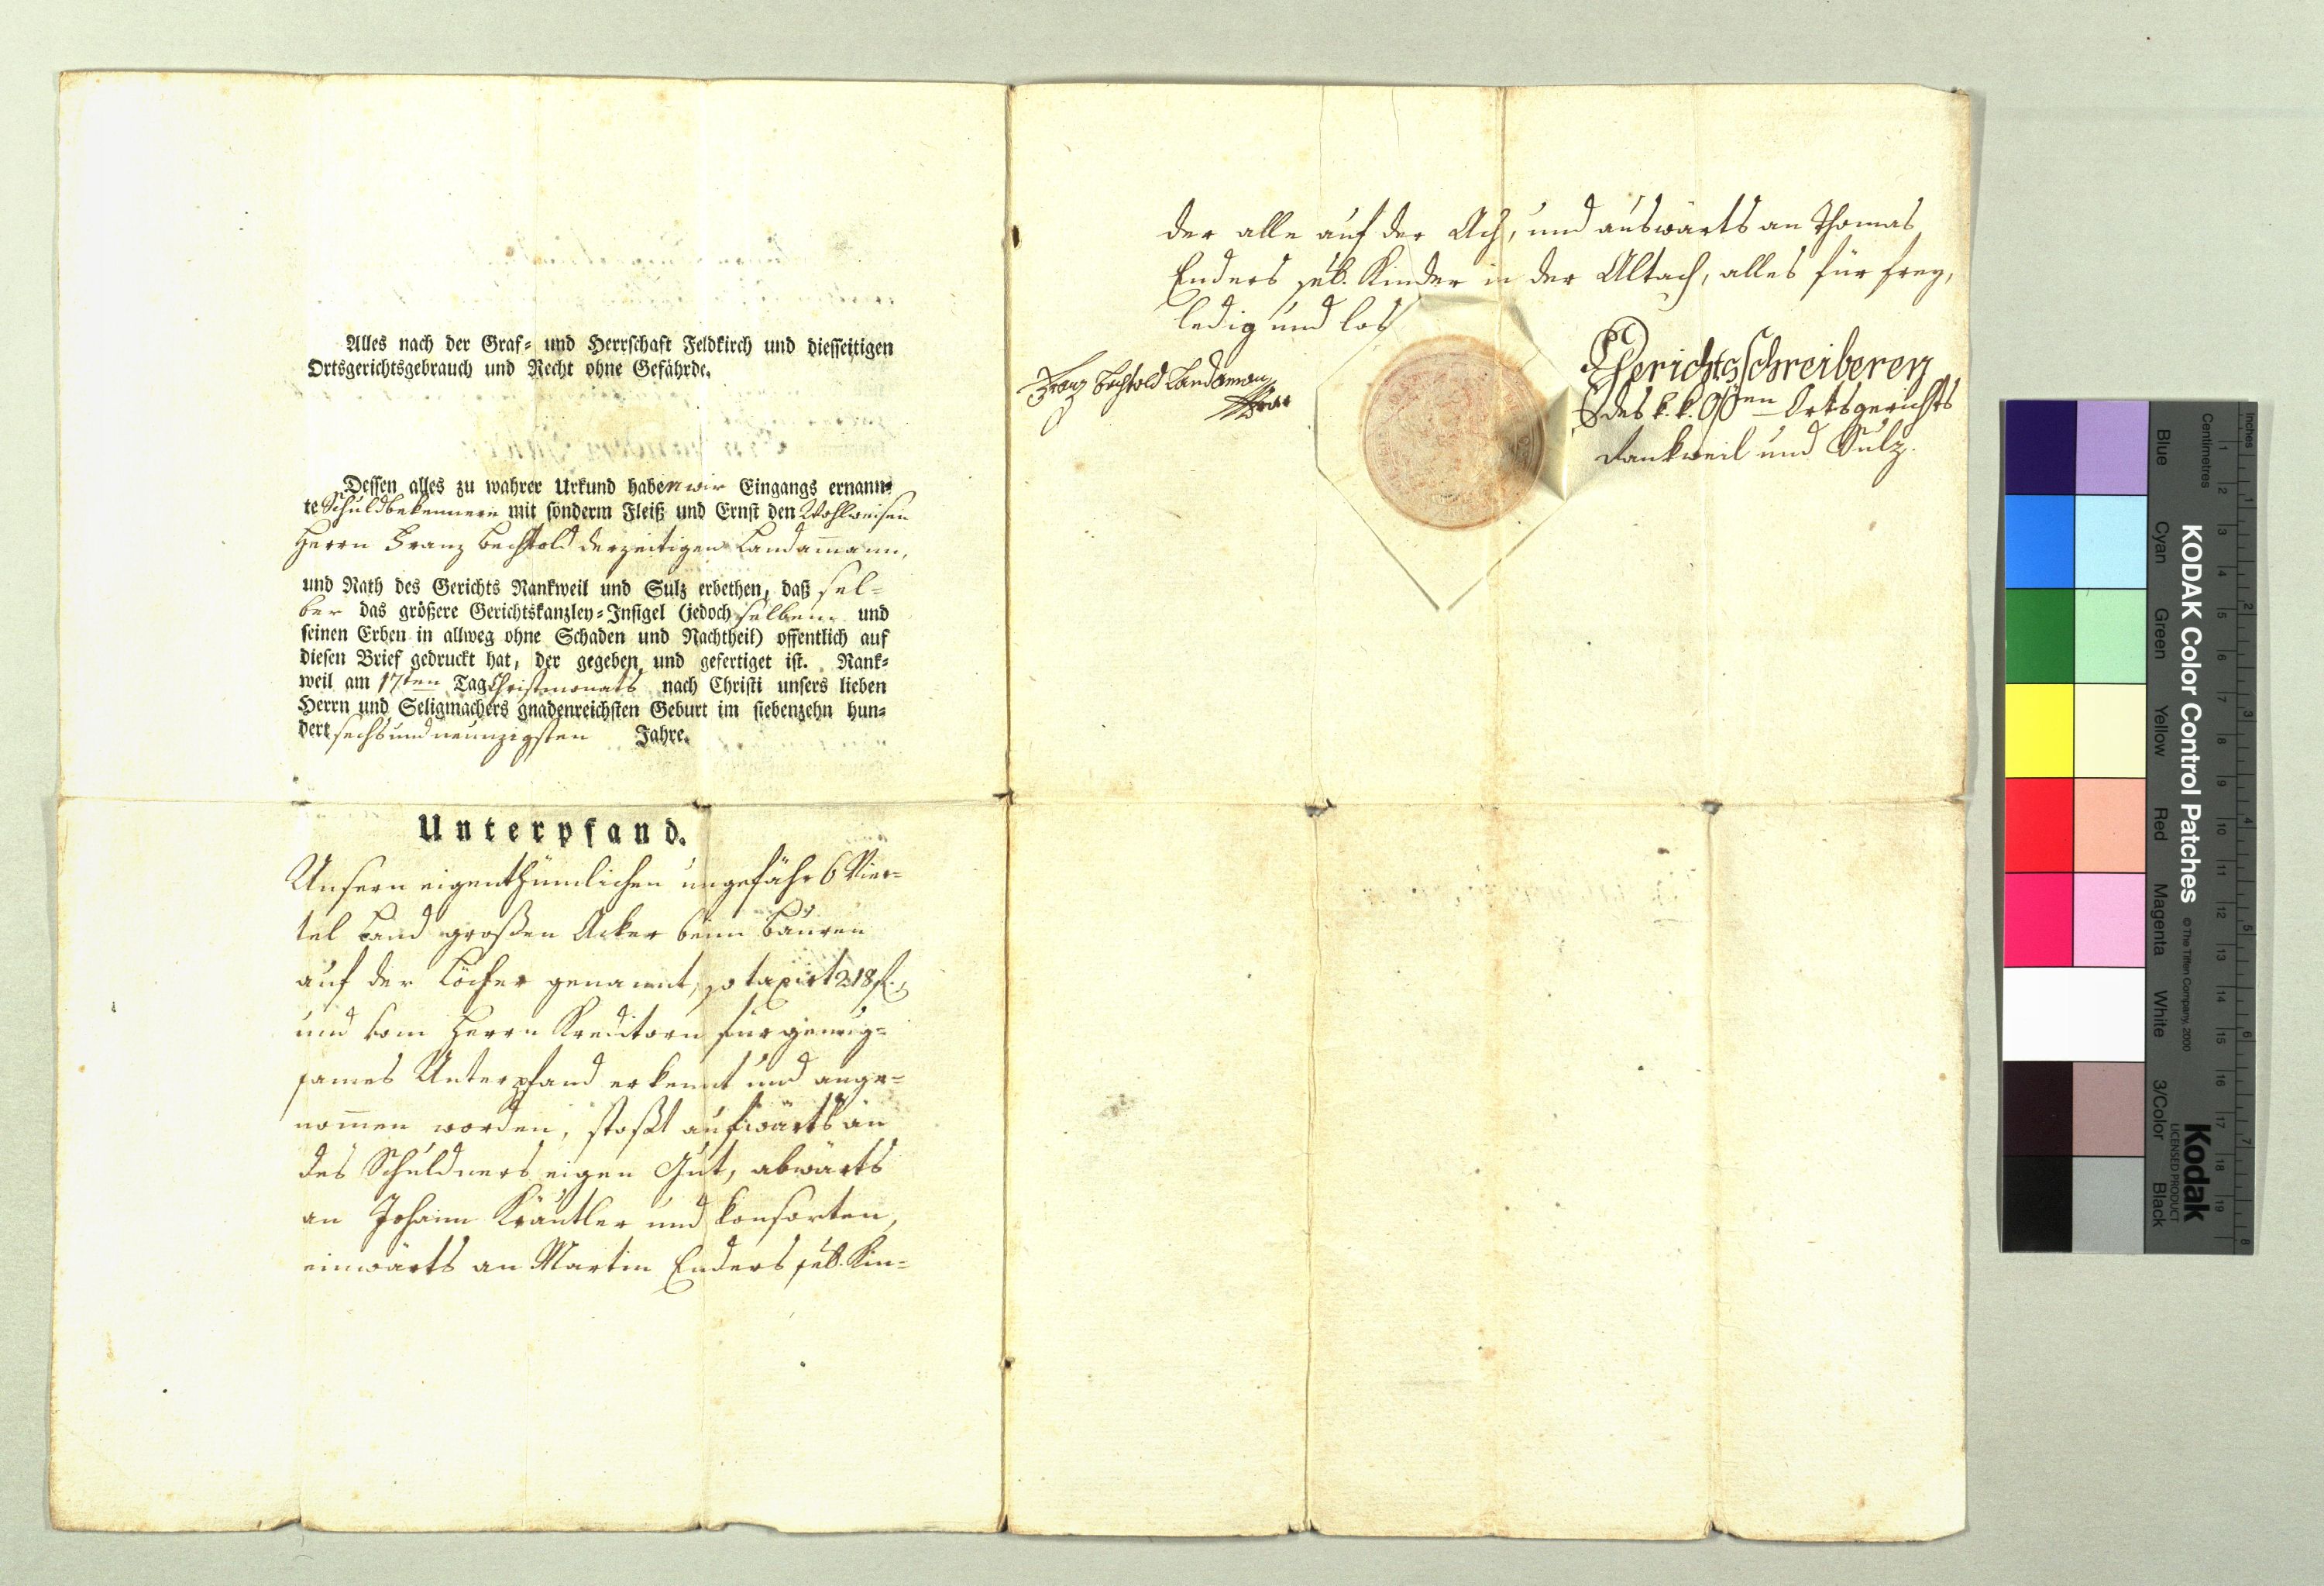 Alles nach der Graf- und Herrschaft Feldkirch und diesseitigen
Ortsgerichtsgebrauch und Recht ohne Gefährde.
Dessen alles zu wahrer Urkund haben wir Eingangs ernann-
te Schuldbekennere mit sonderm Fleiß und Ernst den Wohlweisen
Herrn Franz Bechtold derzeitigen Landam̅ann,
und Rath des Gerichts Rankweil und Sulz erbethen, daß sel-
ber das größere Gerichtskanzley-Insigel (jedoch selbem und
seinen Erben in allweg ohne Schaden und Nachtheil) offentlich auf
diesen Brief gedruckt hat, der gegeben und gefertiget ist. Rank-
weil am 17ten Tag Christmonats nach Christi unsers lieben
Herrn und Seligmachers gnadenreichsten Geburt im siebenzehn hun-
dert sechs und neunzigsten Jahre.
Unterpfand.
Unsern eigenthümlichen ungefähr 6 Vier-
tel Land großen Acker beim Bauren
auf der Löcher genannt, so taxirt 218 f.,
und vom Herrn Kreditorn für genug-
sames Unterpfand erkennt und ange-
nom̅en worden, stoßt aufwärts an
des Schuldners eigen Gut, abwärts
an Johann Kräutler und Konsorten,
einwärts an Martin Enders sel. Kin-
der alle auf der Ach, und auswärts an Thomas
Enders sel. Kinder in der Altach, alles für frey,
ledig und los
Franz Bechtold Landaman
Gerichtsschreiberey
des k. k. OÖen Ortsgerichts
Rankweil und Sulz.
KODAK Color Control Patches
© The Tiffen Company, 2000
Kodak
LICENSED PRODUCT
Inches
Centimetres
Blue
Cyan
Green
Yellow
Red
Magenta
White
3/Color
Black
1 2 3 4 5 6 7 8
1 2 3 4 5 6 7 8 9 10 11 12 13 14 15 16 17 18 19